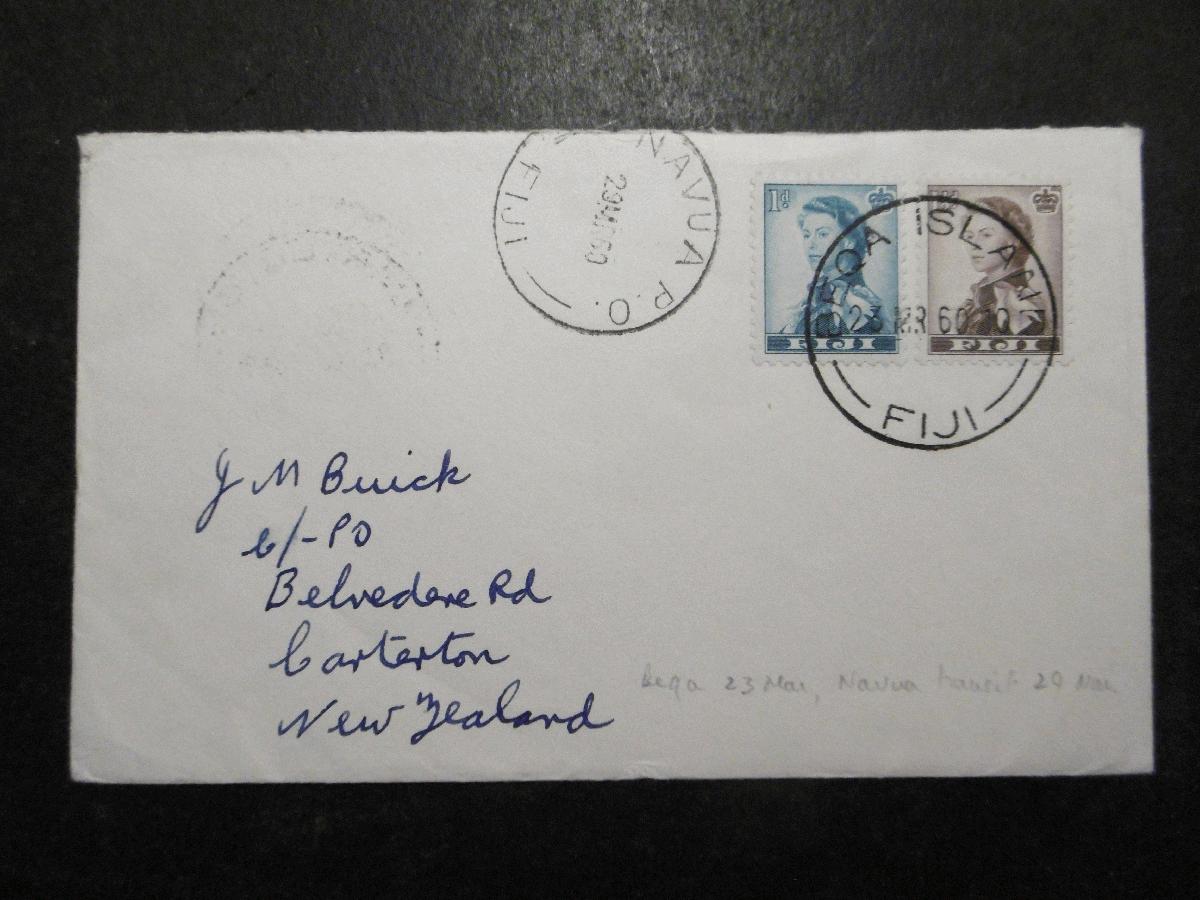 NAVUA P.O.
FIJI
1d
FIJI
FIJI
BEQA ISLAND
23 MR 60
FIJI
J M Buick
c/- PO
Belvedere Rd
Carterton
New Zealand
Beqa 23 Mar, Navua transit 29 Mar